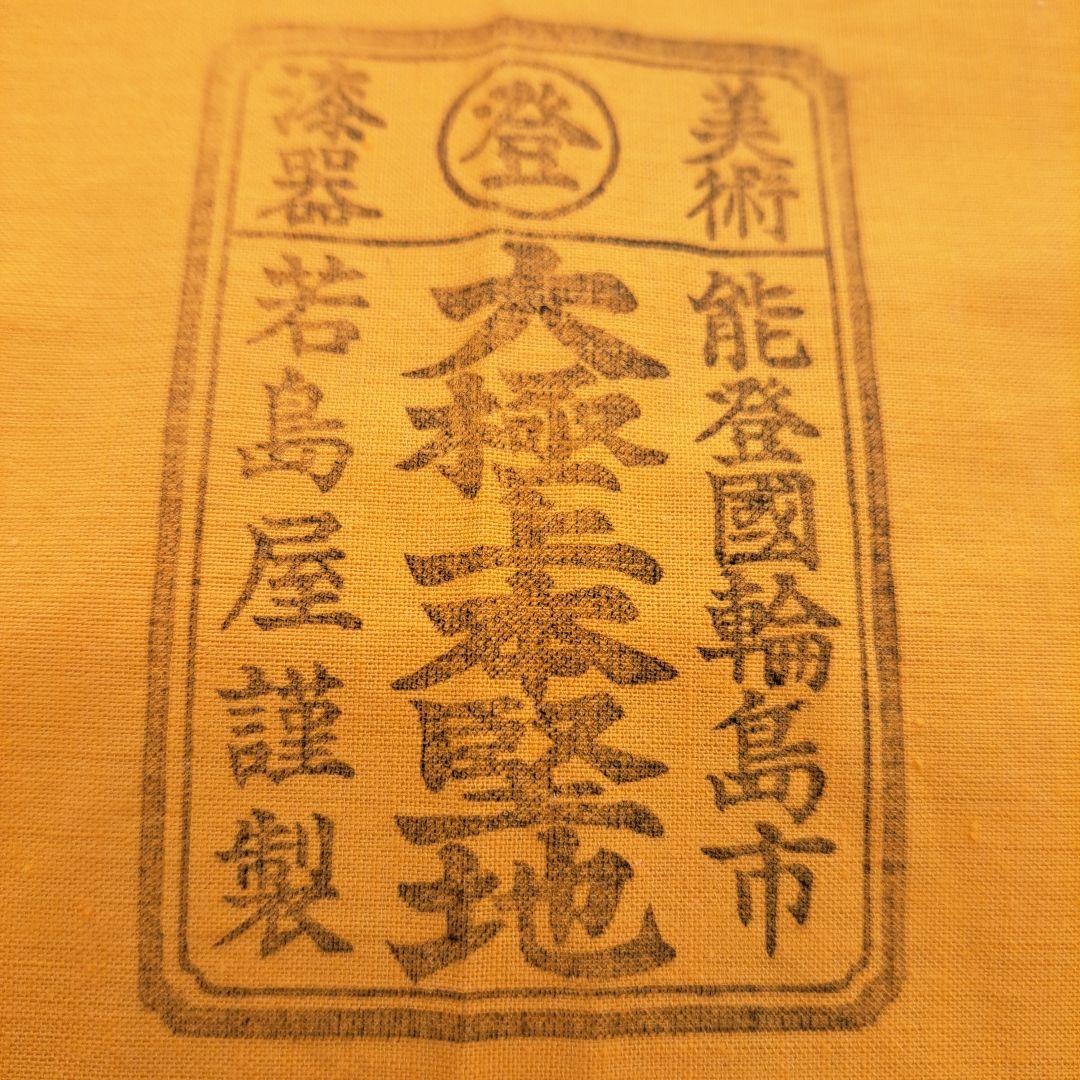 美術
登
漆器
能登國輪島市
大極上本堅地
若島屋謹製